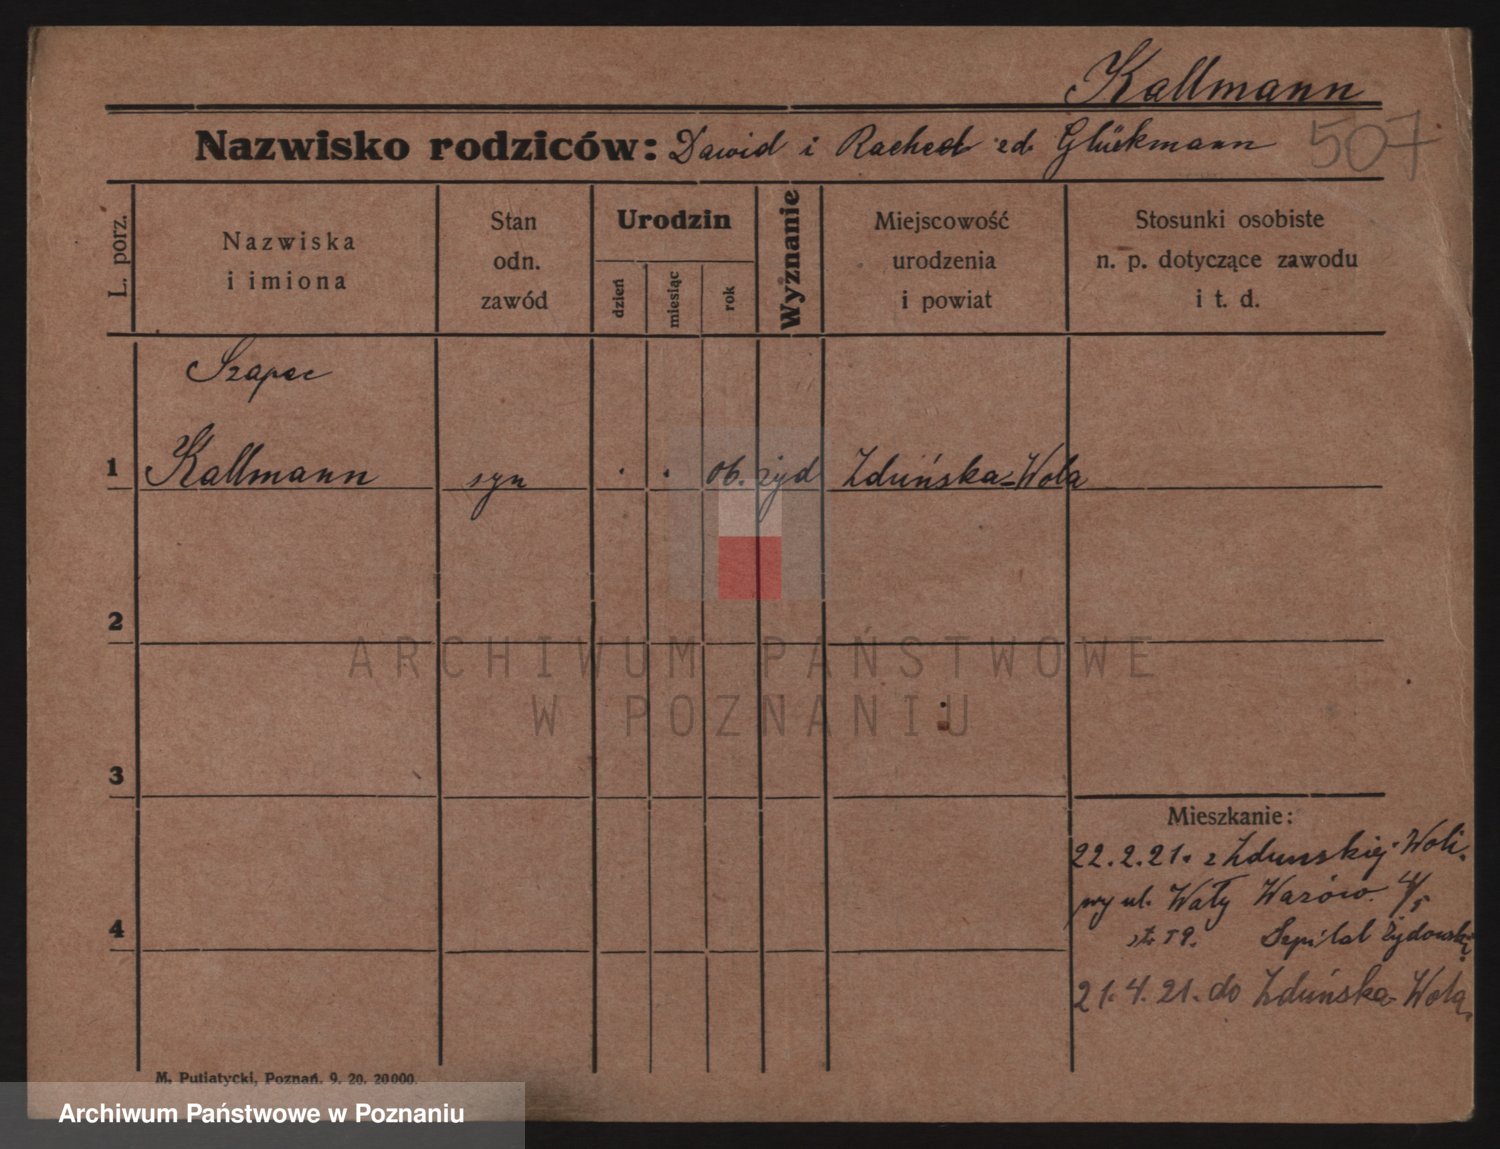 Kallmann
Nazwisko rodziców: Dawid i Rachel zd. Glückmann 507
L. porz.
Nazwiska i imiona
Stan odn. zawód
Urodzin
dzień
miesiąc
rok
Wyznanie
Miejscowość urodzenia i powiat
Stosunki osobiste n. p. dotyczące zawodu i t. d.
Szapec
1 Kallmann syn . . 06. żyd Zduńska-Wola
2
3
Mieszkanie:
22.2.21. z Zdunskiej-Woli.
4
przy ul. Wały Wazów 4/5
Szpital Żydowski
21.4.21. do Zduńska-Wola
M. Putiatycki, Poznań. 9. 20. 20000.
ARCHIWUM PAŃSTWOWE
W POZNANIU
Archiwum Państwowe w Poznaniu